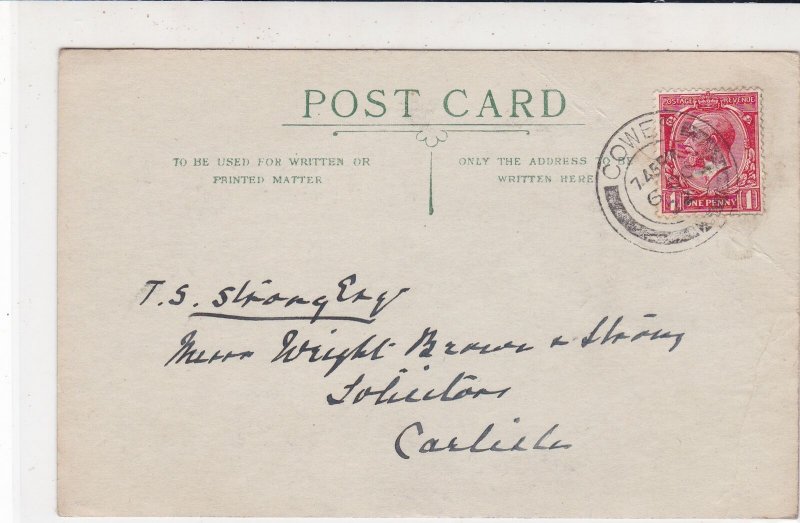 POST CARD
TO BE USED FOR WRITTEN OR
PRINTED MATTER
ONLY THE ADDRESS TO BE
WRITTEN HERE
POSTAGE REVENUE
ONE PENNY
COWE
7.45PM
T. S. Strong Esq
Messrs Wright Brown & Strong
Solicitors
Carlisle